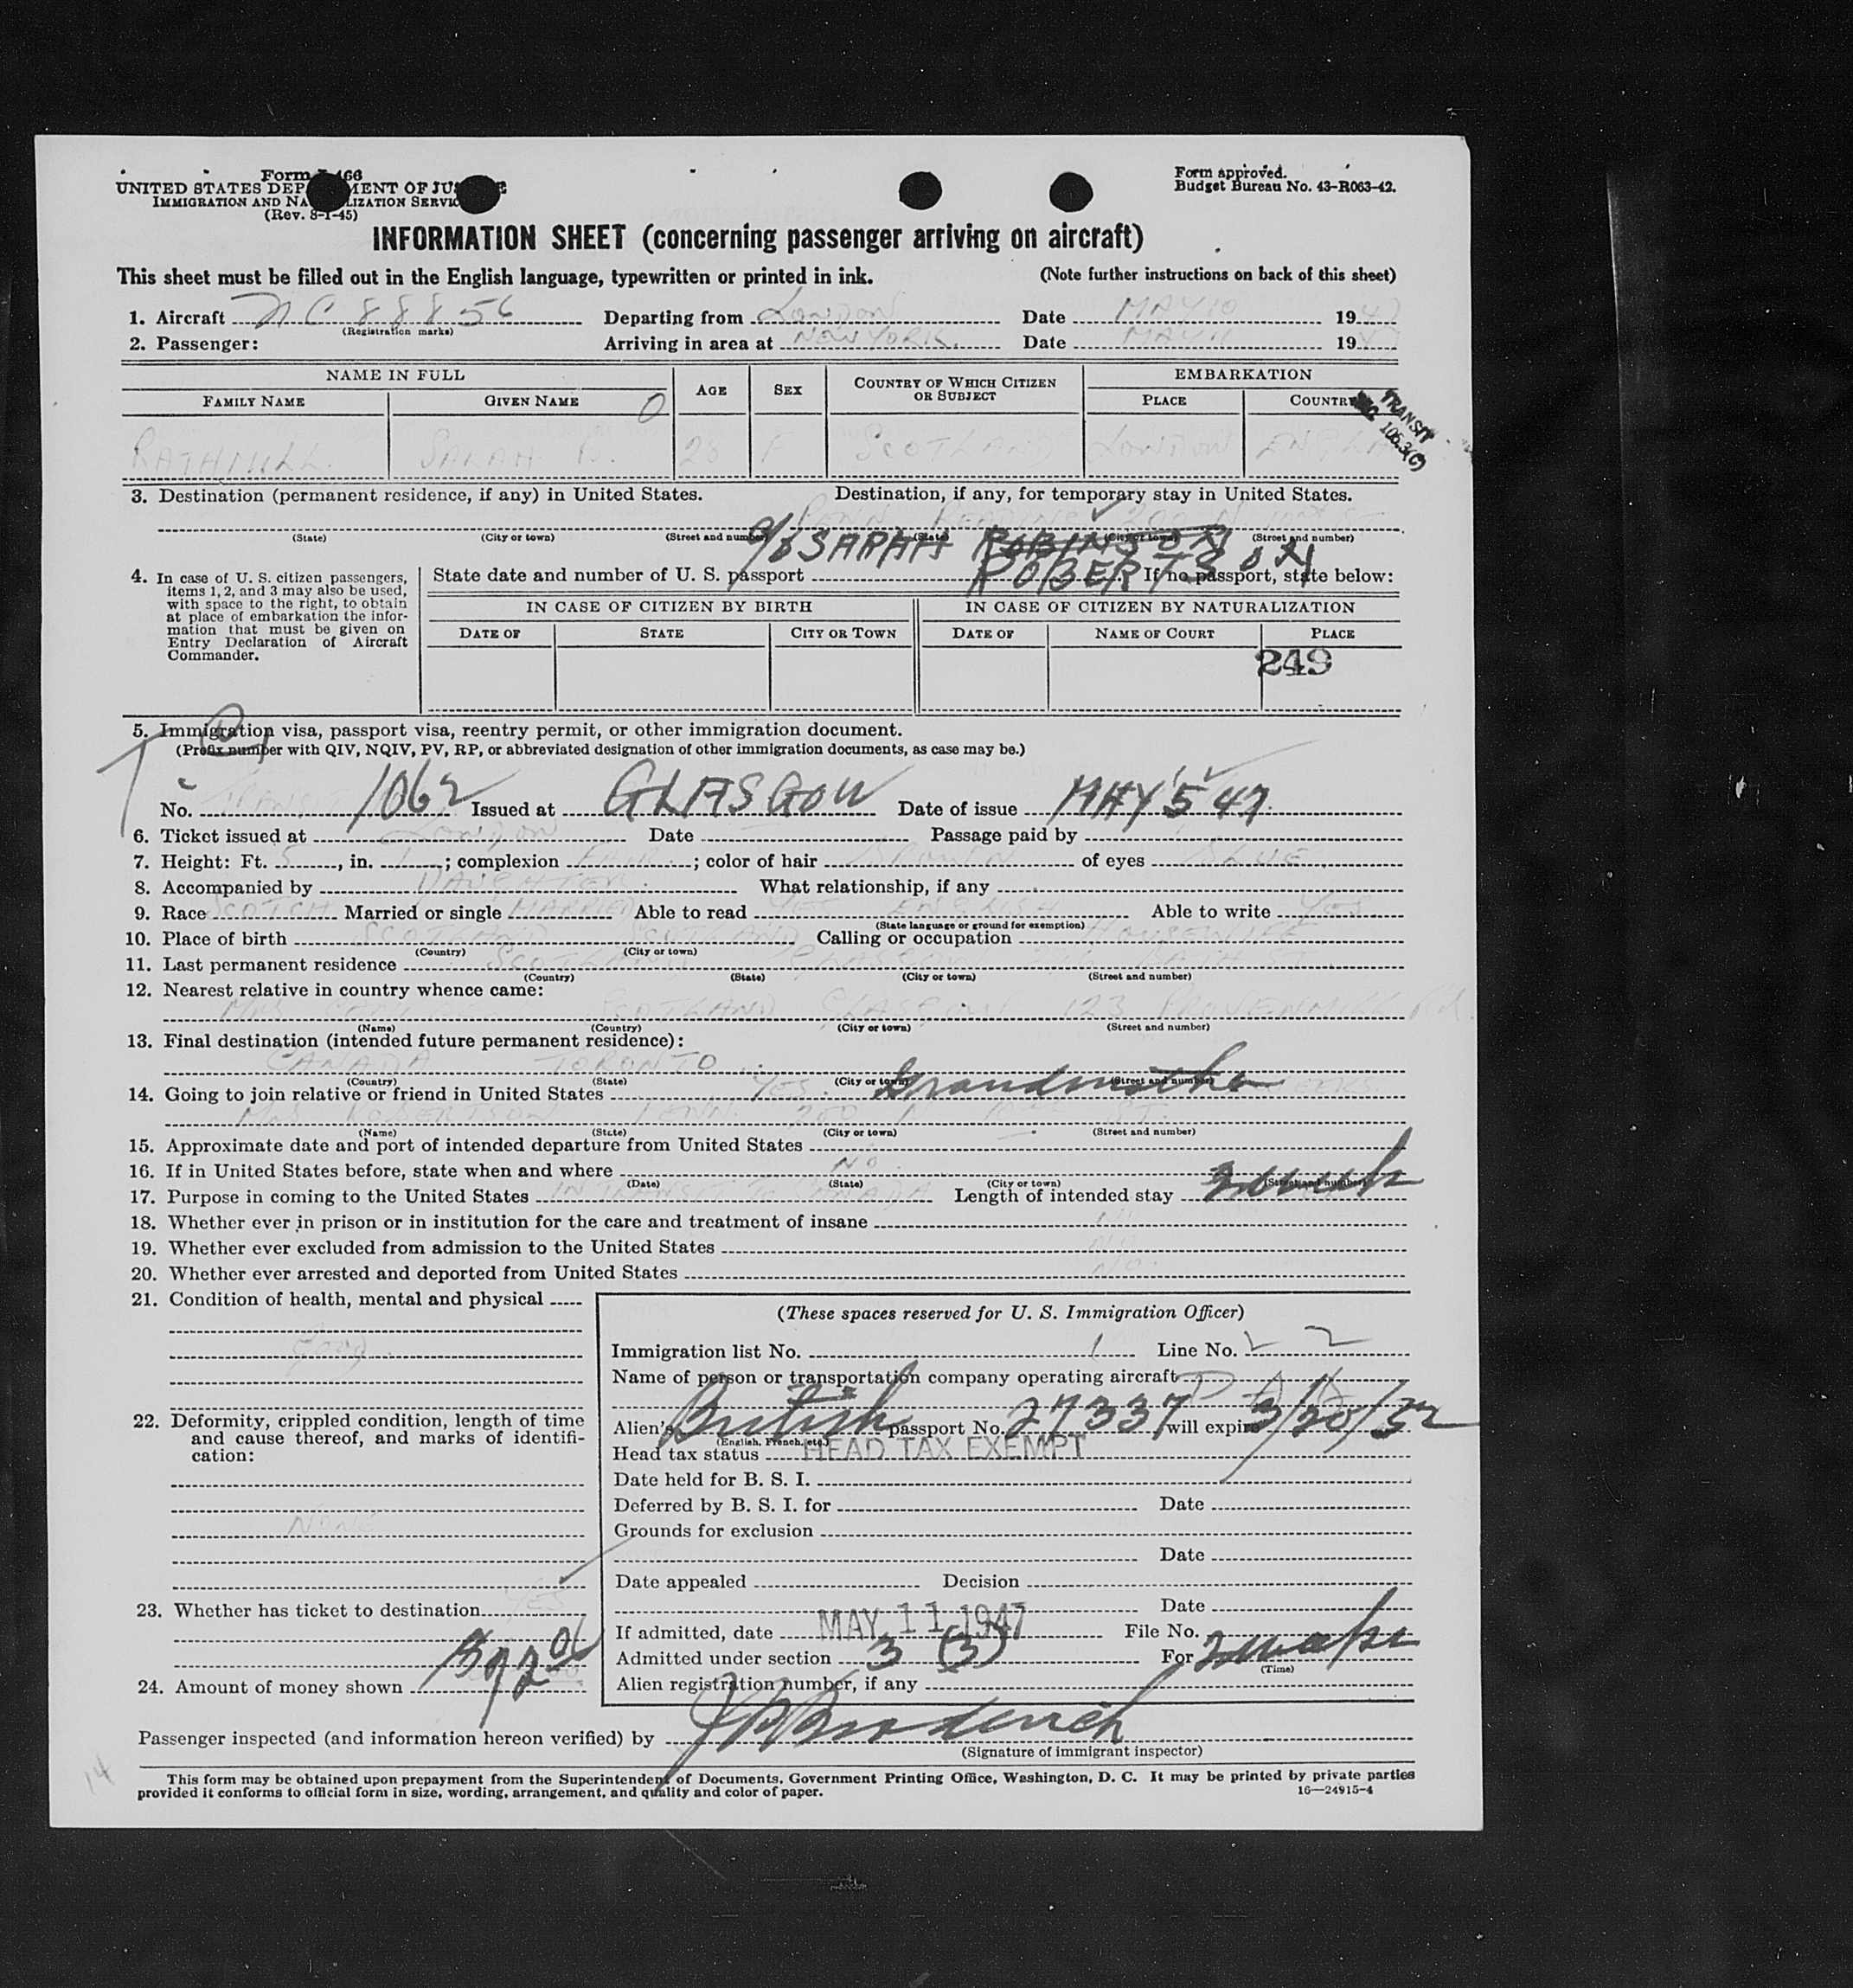 Form I-466
UNITED STATES DEPARTMENT OF JUSTICE
IMMIGRATION AND NATURALIZATION SERVICE
(Rev. 8-1-45)
Form approved.
Budget Bureau No. 43-R063-42.
INFORMATION SHEET (concerning passenger arriving on aircraft)
This sheet must be filled out in the English language, typewritten or printed in ink. (Note further instructions on back of this sheet)
1. Aircraft NC 88856 Departing from London Date MAY 10 1947
(Registration marks)
2. Passenger: Arriving in area at NEW YORK. Date MAY 11 1947
NAME IN FULL AGE SEX COUNTRY OF WHICH CITIZEN OR SUBJECT EMBARKATION
FAMILY NAME GIVEN NAME PLACE COUNTRY
TRANSIT
106.3(C)
SARAH 28 F SCOTLAND LONDON ENGLAND
3. Destination (permanent residence, if any) in United States. Destination, if any, for temporary stay in United States.
(State) (City or town) (Street and number) (State) (City or town) (Street and number)
c/o SARAH ROBINSON
ROBERTSON
4. In case of U. S. citizen passengers, items 1, 2, and 3 may also be used, with space to the right, to obtain at place of embarkation the information that must be given on Entry Declaration of Aircraft Commander.
State date and number of U. S. passport If no passport, state below:
IN CASE OF CITIZEN BY BIRTH IN CASE OF CITIZEN BY NATURALIZATION
DATE OF STATE CITY OR TOWN DATE OF NAME OF COURT PLACE
249
5. Immigration visa, passport visa, reentry permit, or other immigration document.
(Prefix number with QIV, NQIV, PV, RP, or abbreviated designation of other immigration documents, as case may be.)
No. 1062 Issued at GLASGOW Date of issue MAY 5 47
6. Ticket issued at London Date Passage paid by
7. Height: Ft. 5, in. ; complexion FAIR; color of hair BROWN of eyes BLUE
8. Accompanied by DAUGHTER. What relationship, if any
9. Race SCOTCH Married or single MARRIED Able to read YES ENGLISH Able to write YES
(State language or ground for exemption)
10. Place of birth SCOTLAND Calling or occupation HOUSEWIFE
(Country) (City or town)
11. Last permanent residence SCOTLAND GLASGOW
(Country) (State) (City or town) (Street and number)
12. Nearest relative in country whence came:
MRS SCOTLAND GLASGOW 123 PROVANMILL Rd.
(Name) (Country) (City or town) (Street and number)
13. Final destination (intended future permanent residence):
CANADA TORONTO
(Country) (State) (City or town) (Street and number)
14. Going to join relative or friend in United States YES. Grandmother
MRS ROBERTSON PENN. ST.
(Name) (State) (City or town) (Street and number)
15. Approximate date and port of intended departure from United States
16. If in United States before, state when and where No.
(Date) (State) (City or town) (Street and number)
17. Purpose in coming to the United States IN TRANSIT TO CANADA Length of intended stay
18. Whether ever in prison or in institution for the care and treatment of insane NO
19. Whether ever excluded from admission to the United States NO
20. Whether ever arrested and deported from United States NO.
21. Condition of health, mental and physical
Good.
22. Deformity, crippled condition, length of time and cause thereof, and marks of identification:
NONE
23. Whether has ticket to destination YES
24. Amount of money shown
(These spaces reserved for U. S. Immigration Officer)
Immigration list No. 1 Line No. 2
Name of person or transportation company operating aircraft
Alien's British passport No. 27337 will expire 3/20/52
(English, French, etc.)
Head tax status HEAD TAX EXEMPT
Date held for B. S. I.
Deferred by B. S. I. for Date
Grounds for exclusion
Date
Date appealed Decision
Date
If admitted, date MAY 11 1947 File No.
Admitted under section 3 (3) For
(Time)
Alien registration number, if any
Passenger inspected (and information hereon verified) by
(Signature of immigrant inspector)
14
This form may be obtained upon prepayment from the Superintendent of Documents, Government Printing Office, Washington, D. C. It may be printed by private parties
provided it conforms to official form in size, wording, arrangement, and quality and color of paper. 16—24915-4